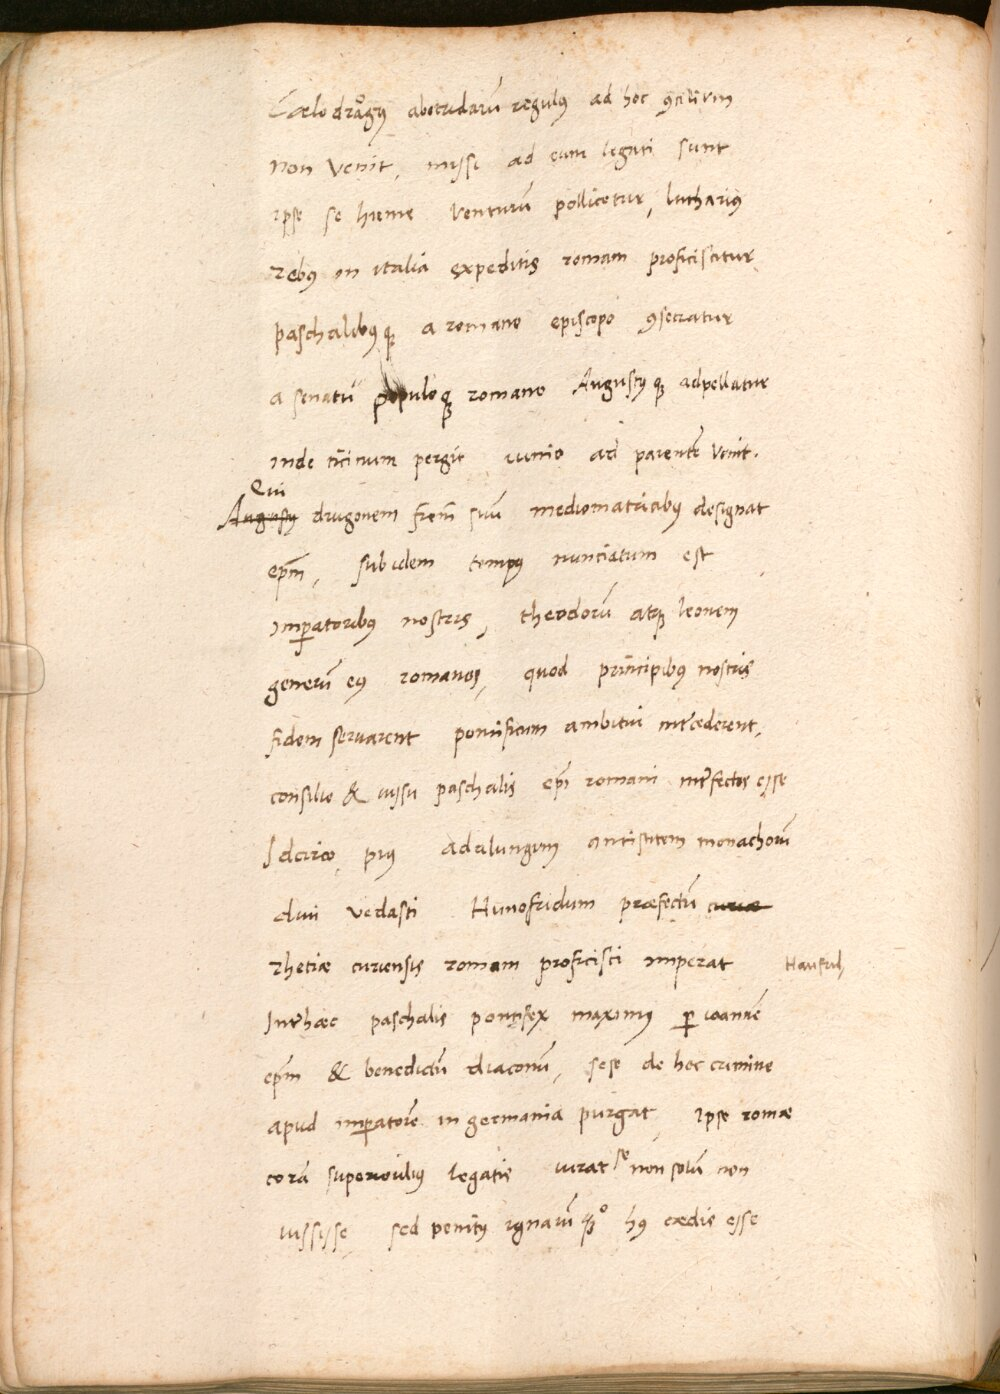 Cælodragꝰ abotridarū regulꝰ ad hoc ꝯciliūm
non venit, missi ad eum legati sunt
ipse se hieme venturū pollicetur, lutharius
rebꝰ in italia expeditis romam proficiscitur
paschalibꝰqꝫ a romano episcopo ꝯsecratur
a senatu populoqꝫ romano Augustꝰqꝫ adpellatur
inde ticinum pergit iunio ad parentē venit.
Qui
Augustꝰ drugonem frēm suū mediomatricibꝰ designat
epm̄, sub idem tempꝰ nunciatum est
imꝑatoribꝰ nostris, theodorū atqꝫ leonem
generū eiꝰ romanos, quod principibꝰ nostris
fidem servarent pontificum ambitui int̄cederent,
consilio & iussu paschalis ep̄i romani int̄fectos esse
Idcirco, priꝰ adalungum antistitem monachorū
divi vedasti Hunofridum præfectū curiæ
rhetiæ curiensis romam proficisci imperat
Haufrid
Int̄hæc paschalis pontifex maximꝰ ꝑ ioannē
epm̄ & benedictū diaconū, sese de hoc crimine
apud imꝑatorē in germania purgat, Ipse romæ
corā superioribus legatis iurat se non solū non
iussisse, sed penitꝰ ignarū qꝫ° hꝰ cædis esse